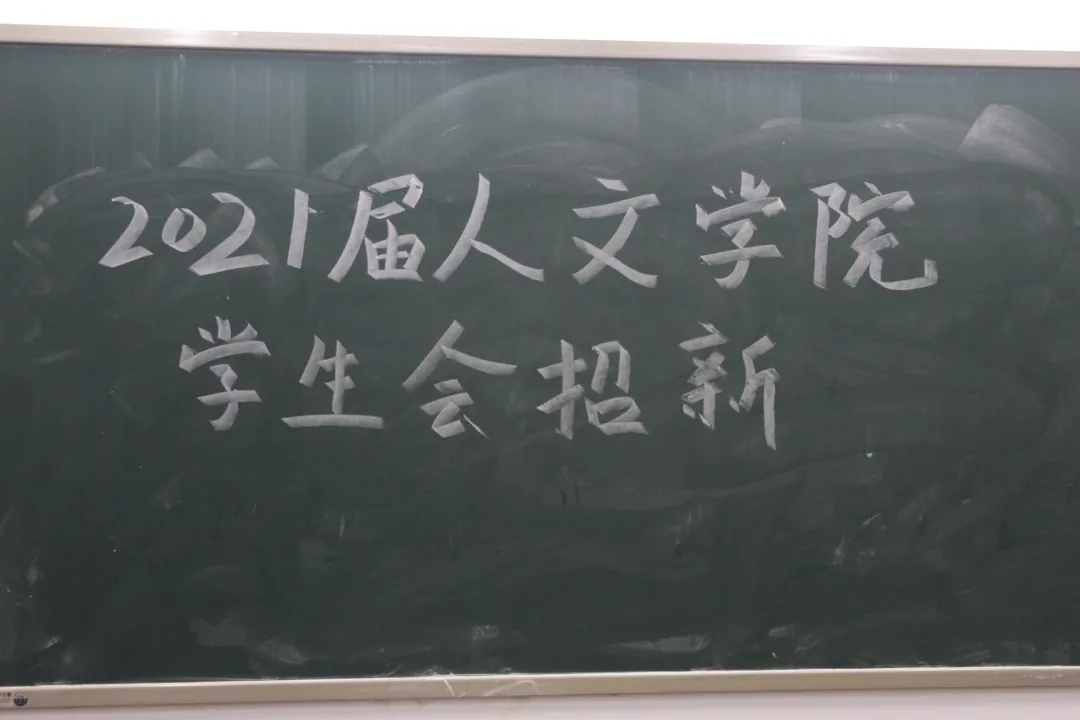 2021届人文学院
学生会招新